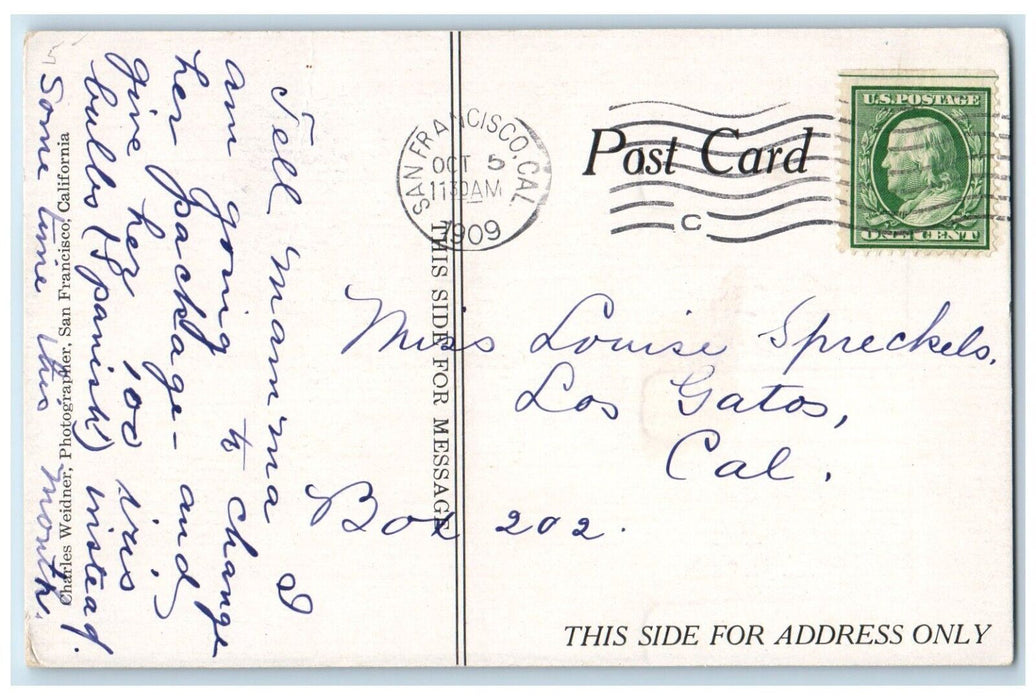 Post Card
U.S. POSTAGE
ONE CENT
SAN FRANCISCO, CAL.
OCT 5
1130AM
1909
C
THIS SIDE FOR MESSAGE
Miss Louise Spreckels.
Los Gatos,
Cal.
Box 202.
THIS SIDE FOR ADDRESS ONLY
Tell mamma I
am going to change
her package - and
give her 100 iris
bulbs (Spanish) instead.
Some time this month.
Charles Weidner, Photographer, San Francisco, California